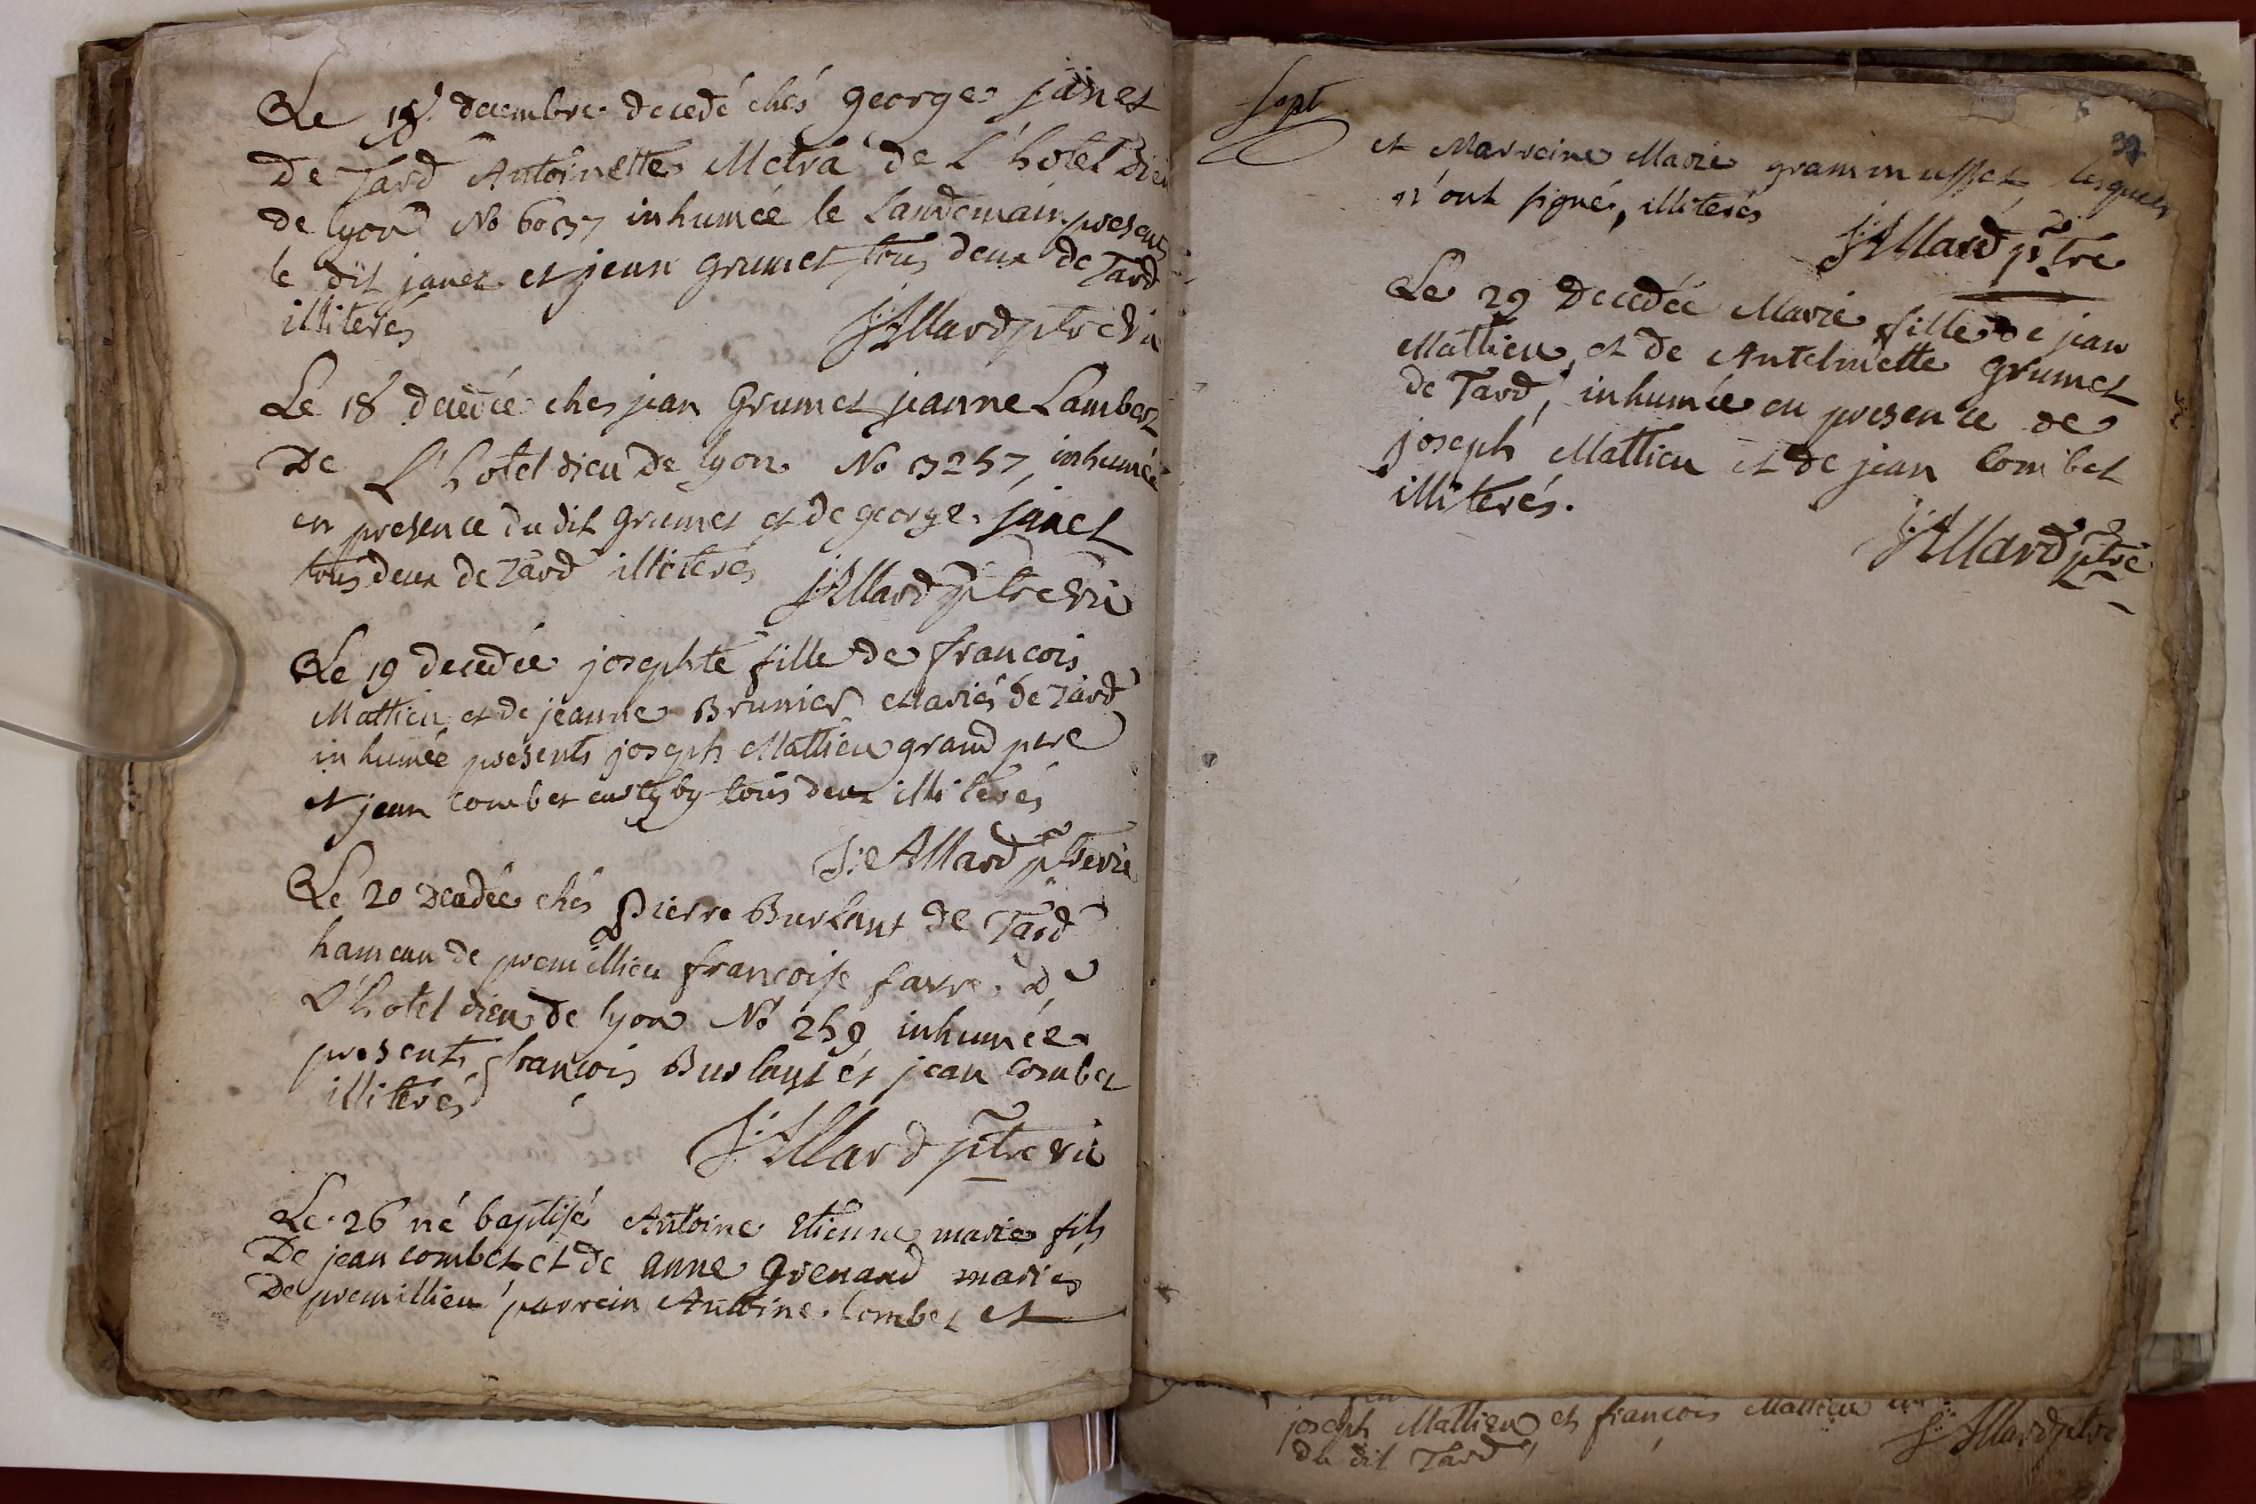 Le 18 decembre decedé chés george janet
De Tard Antoinette Metra de L'hotel Dieu
de lyon No 6037 inhumée le landemain presents
le dit janet et jean grumet tous deux de Tard
illiterés
J: Allard ptre vic
Le 18 decedée ches jean Grumet jeanne Lambert
De L'hotel dieu de lyon No 3257, inhumée
en presence du dit grumet et de george janet
tous deux de Tard illiterés
J: Allard ptre vic
Le 19 decedée josephte fille de francois
Mattieu et de jeanne Brunier mariés de Tard
inhumée presents joseph Mattieu grand pere
et jean combet tous deux illiterés
J: Allard ptre vic
Le 20 Decedée chés pierre Burlant de Tard
hameau de premillieu francoise favre de
L'hotel dieu de lyon No 259 inhumée
presents francois Burlant et jean combet
illiterés
J: Allard ptre vic
Le 26 né baptisé Antoine Etienne marie fils
De jean combet et de anne grenand mariés
De premillieu parrein Antoine Combet et
sept
39
et Marreine Marie grammusset lesquels
n'ont signé, illiterés
J: Allard ptre
Le 29 Decedée Marie fille de jean
Mattieu et de Antelmette grumet
de Tard, inhumée en presence de
joseph Mattieu et de jean Combet
illiterés.
J: Allard ptre
joseph Mattieu et francois Mattieu
du dit Tard
J: Allard ptre